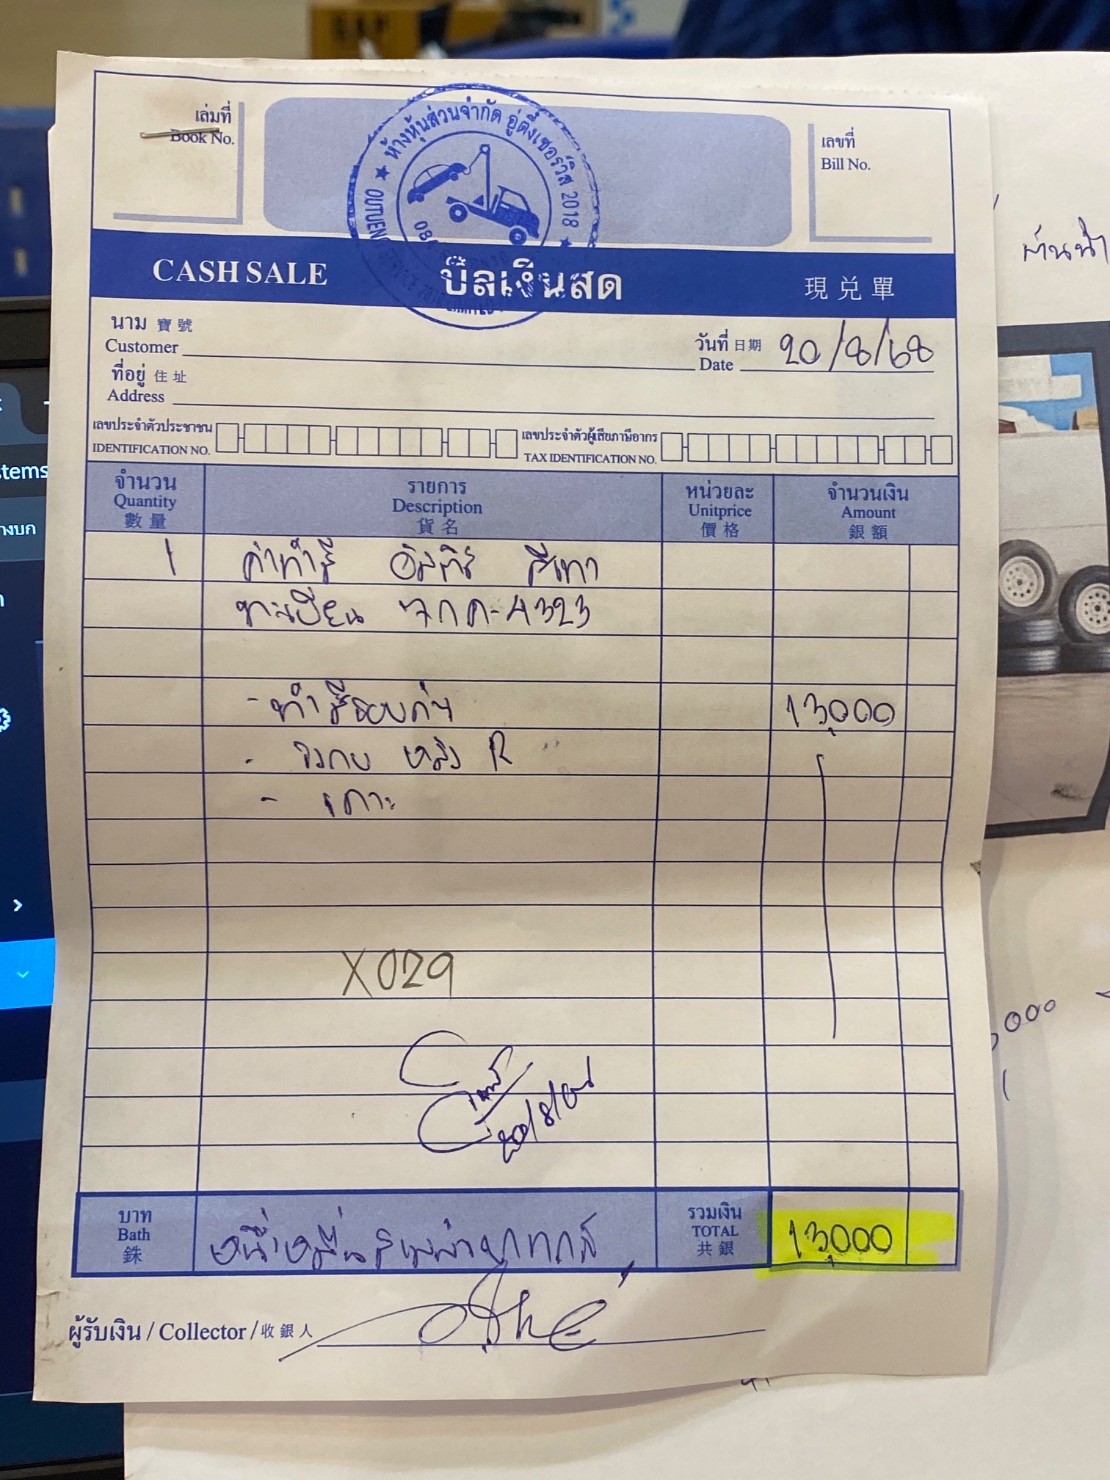 เล่มที่
Book No.
เลขที่
Bill No.
★ ห้างหุ้นส่วนจำกัด อู่ตึ๋งเซอร์วิส 2018 ★
CASH SALE บิลเงินสด 現兌單
นาม 寶號
Customer
วันที่ 日期
Date 20/8/68
ที่อยู่ 住址
Address
เลขประจำตัวประชาชน
IDENTIFICATION NO.
เลขประจำตัวผู้เสียภาษีอากร
TAX IDENTIFICATION NO.
จำนวน
Quantity
數量
รายการ
Description
貨名
หน่วยละ
Unitprice
價格
จำนวนเงิน
Amount
銀額
1 ค่าทำสี สีเทา
ทะเบียน 7กค-4323
- ทำสีรอบคัน 13,000
- หลัง R
- เคาะ
X029
20/8/68
บาท
Bath
銖
หนึ่งหมื่นสามพันบาท
รวมเงิน
TOTAL
共銀
13,000
ผู้รับเงิน / Collector / 收銀人